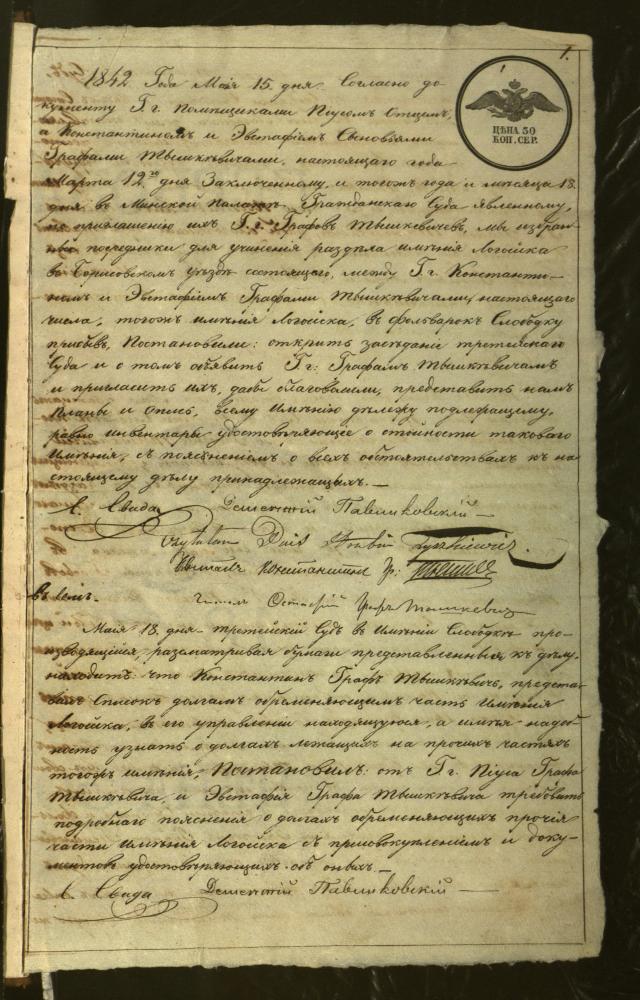 1.
ЦѢНА 50
КОП. СЕР.
1842 Года Мая 15 дня. Согласно до
кументу Г.г. Помѣщиками Піусомъ Отцемъ,
а Константиномъ и Эвстафіемъ Сыновьями
Графами Тышкѣвичами, настоящаго года
Марта 12го дня Заключенному, и тогожъ года и мѣсяца 18.
дня въ Минской Палатѣ Гражданскаго Суда явленному,
по приглашенію ихъ Г.г. Графовъ Тышкевичевъ, мы избран
ные посредники для учиненія раздѣла имѣнія Логойска
въ Борисовскомъ уѣздѣ состоящаго, между Г.г. Константи-
номъ и Эвстафіемъ Графами Тышкѣвичами, настоящаго
числа, тогожъ имѣнія Логойска, въ фольварокъ Слободку
прибывъ, Постановили: открыть засѣданіе третейскаго
Суда и о томъ объявить Г.г: Графамъ Тышкѣвичамъ
и пригласить ихъ, дабы благоволили, представить намъ
планы и опись, всему имѣнію дѣлежу подлежащему,
равно инвентарь удостовѣряющее о стойности таковаго
Имѣнія, съ поясненіемъ о всѣхъ обстоятельствахъ къ на
стоящему дѣлу принадлежащихъ. —
Свида Дементій Павликовскій —
czytałem Pius Hrabia Tyszkiewicz.
Читалъ Константинъ Гр:
Читалъ Остафій Графъ Тышкевичъ
Мая 18. дня - третейскій Судъ въ Имѣніи Слободкѣ про-
изводящійся, разсматривая бумаги представленныя къ дѣлу,
находитъ: что Константинъ Графъ Тышкѣвичъ, предста-
вилъ Списокъ долгамъ обременяющимъ часть Имѣнія
Логойска, въ его управленіи находящуюся, а имѣя надоб
ность узнать о долгахъ лежащихъ на прочихъ частяхъ
тогожъ имѣнія, Постановилъ: отъ Г.г. Піуса Графа
Тышкѣвича, и Эвстафія Графа Тышкѣвича требовать
подробнаго поясненія о долгахъ обременяющихъ прочія
части имѣнія Логойска съ присовокупленіемъ и доку-
ментовъ удостовѣряющихъ объ оныхъ. —
Свида Дементій Павликовскій —